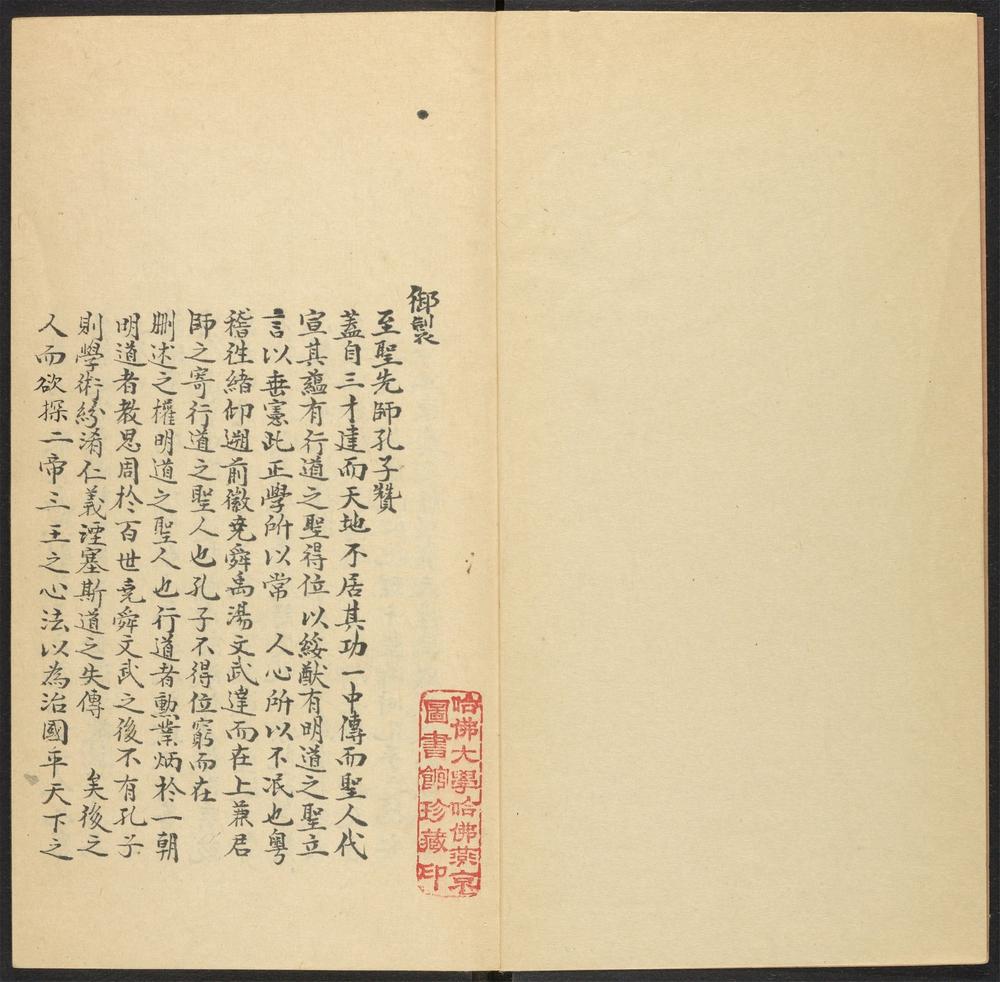 御製
至聖先師孔子贊
蓋自三才建而天地不居其功一中傳而聖人代
宣其蘊有行道之聖得位以綏猷有明道之聖立
言以垂憲此正學所以常　人心所以不泯也粵
稽徃緒仰遡前徽堯舜禹湯文武達而在上兼君
師之寄行道之聖人也孔子不得位窮而在
刪述之權明道之聖人也行道者勲業炳於一朝
明道者教思周於百世堯舜文武之後不有孔子
則學術紛淆仁義湮塞斯道之失傳　矣後之
人而欲探二帝三王之心法以為治國平天下之
哈佛大學哈佛燕京
圖書館珍藏印